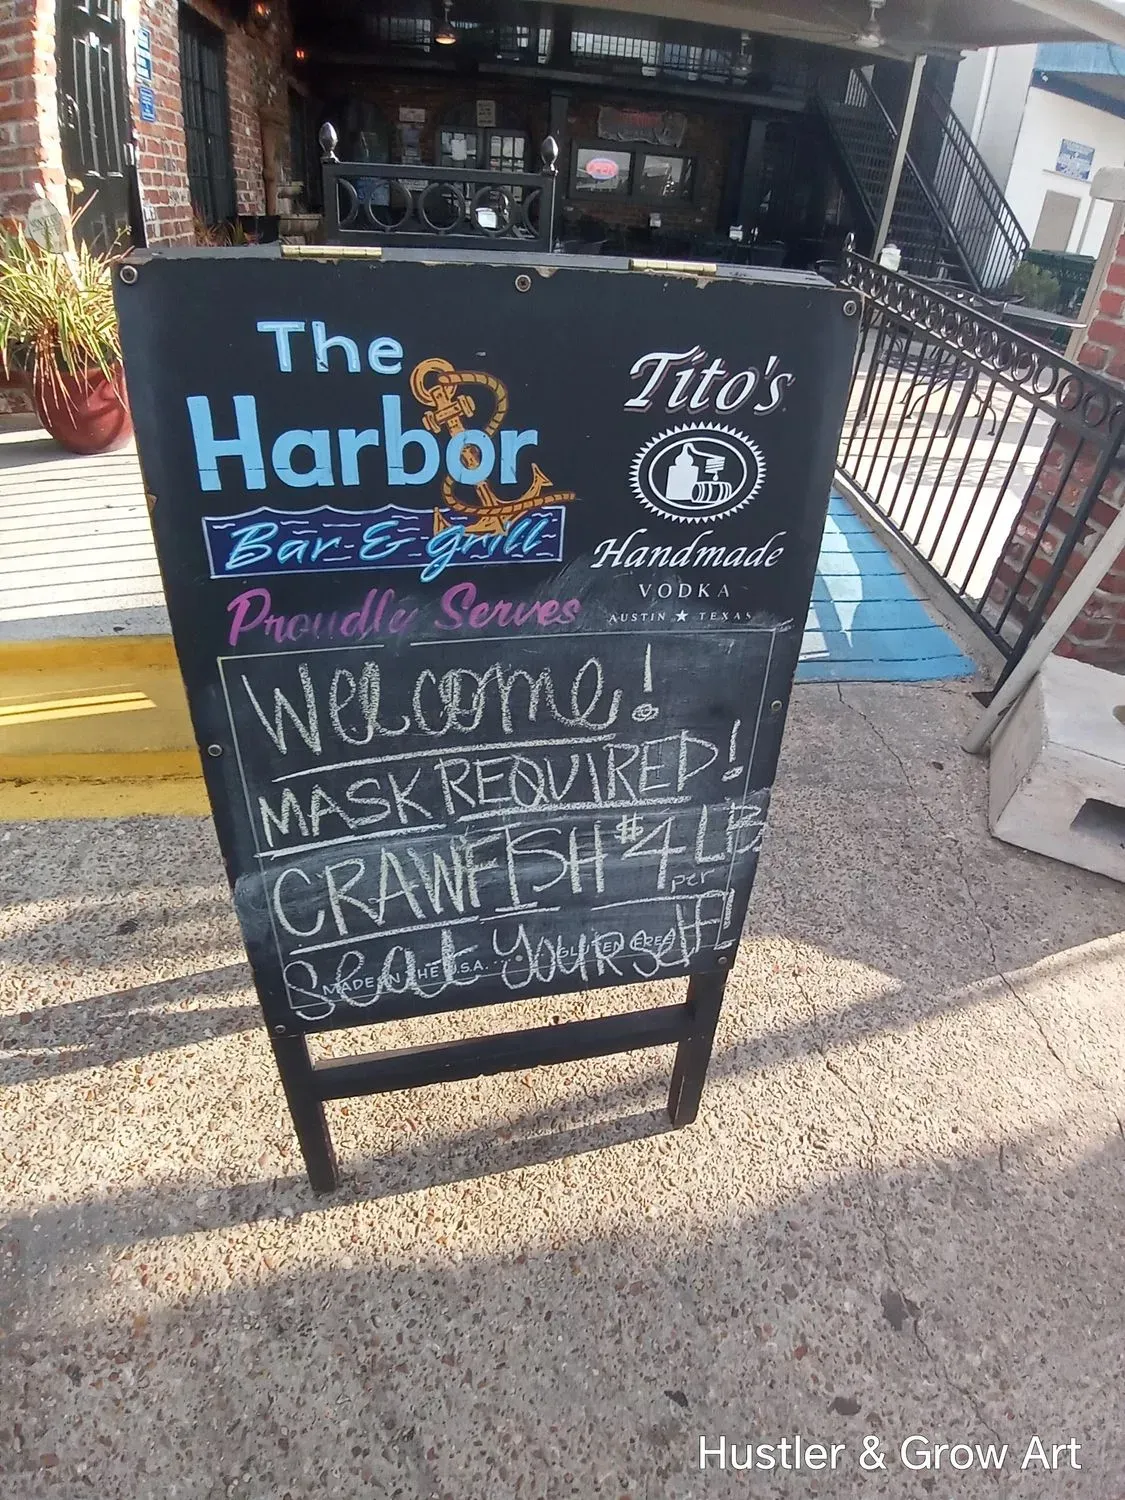 The
Harbor
Bar & Grill
Proudly Serves
Tito's
Handmade
VODKA
AUSTIN ★ TEXAS
Welcome!
MASK REQUIRED!
CRAWFISH $4 per LB
Seat YOURSELF!
MADE IN THE U.S.A.
GLUTEN FREE
OPEN
Hustler & Grow Art